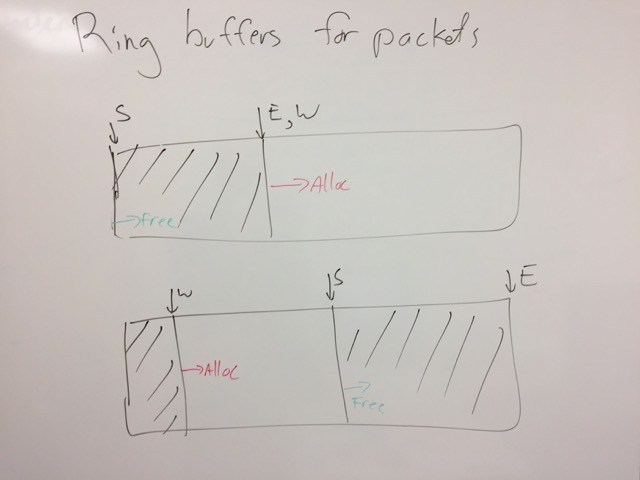 Ring buffers for packets
S
E, W
Alloc
Free
W
S
E
Alloc
Free